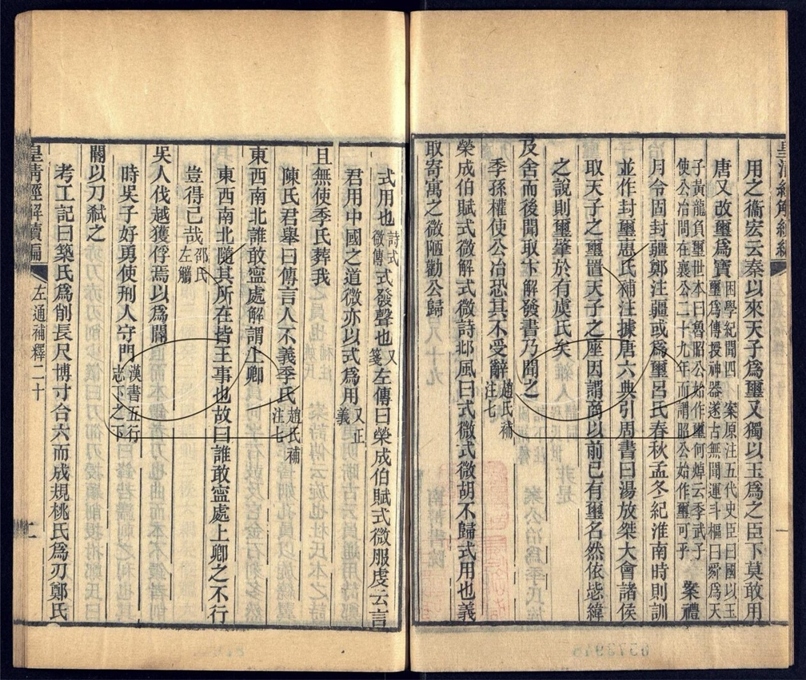 用之衞宏云秦以來天子爲璽又獨以玉爲之臣下莫敢用
唐又改璽爲寶 困學紀聞四 案原注五代史臣曰國以玉璽爲傳授神器遂古無聞運斗樞曰舜爲天
子黃龍負璽世本曰魯昭公始作璽何焯云季武子使公冶問在襄公二十九年而謂昭公始作璽可乎 案禮
月令固封疆鄭注疆或爲璽呂氏春秋孟冬紀淮南時則訓
並作封璽惠氏補注據唐六典引周書曰湯放桀大會諸侯
取天子之璽置天子之座因謂商以前已有璽名然依毖緯
之說則璽肇於有虞氏矣
及舍而後聞取卞解發書乃聞之
季孫權使公冶恐其不受辭 趙氏補注七
榮成伯賦式微解式微詩邶風曰式微式微胡不歸式用也義
取寄寓之微陋勸公歸
式用也 詩式微傳 式發聲也 又箋 左傳曰榮成伯賦式微服虔云言
君用中國之道微亦以式爲用 又正義
且無使季氏葬我
陳氏君舉曰傳言人不義季氏 趙氏補注七
東西南北誰敢寧處解謂上卿
東西南北隨其所在皆王事也故曰誰敢寧處上卿之不行
豈得已哉 邵氏左觿
吳人伐越獲俘焉以爲閽
時吳子好勇使刑人守門 漢書五行志下之下
閽以刀弒之
考工記曰築氏爲削長尺博寸合六而成規桃氏爲刃鄭氏
皇清經解續編 左通補釋二十